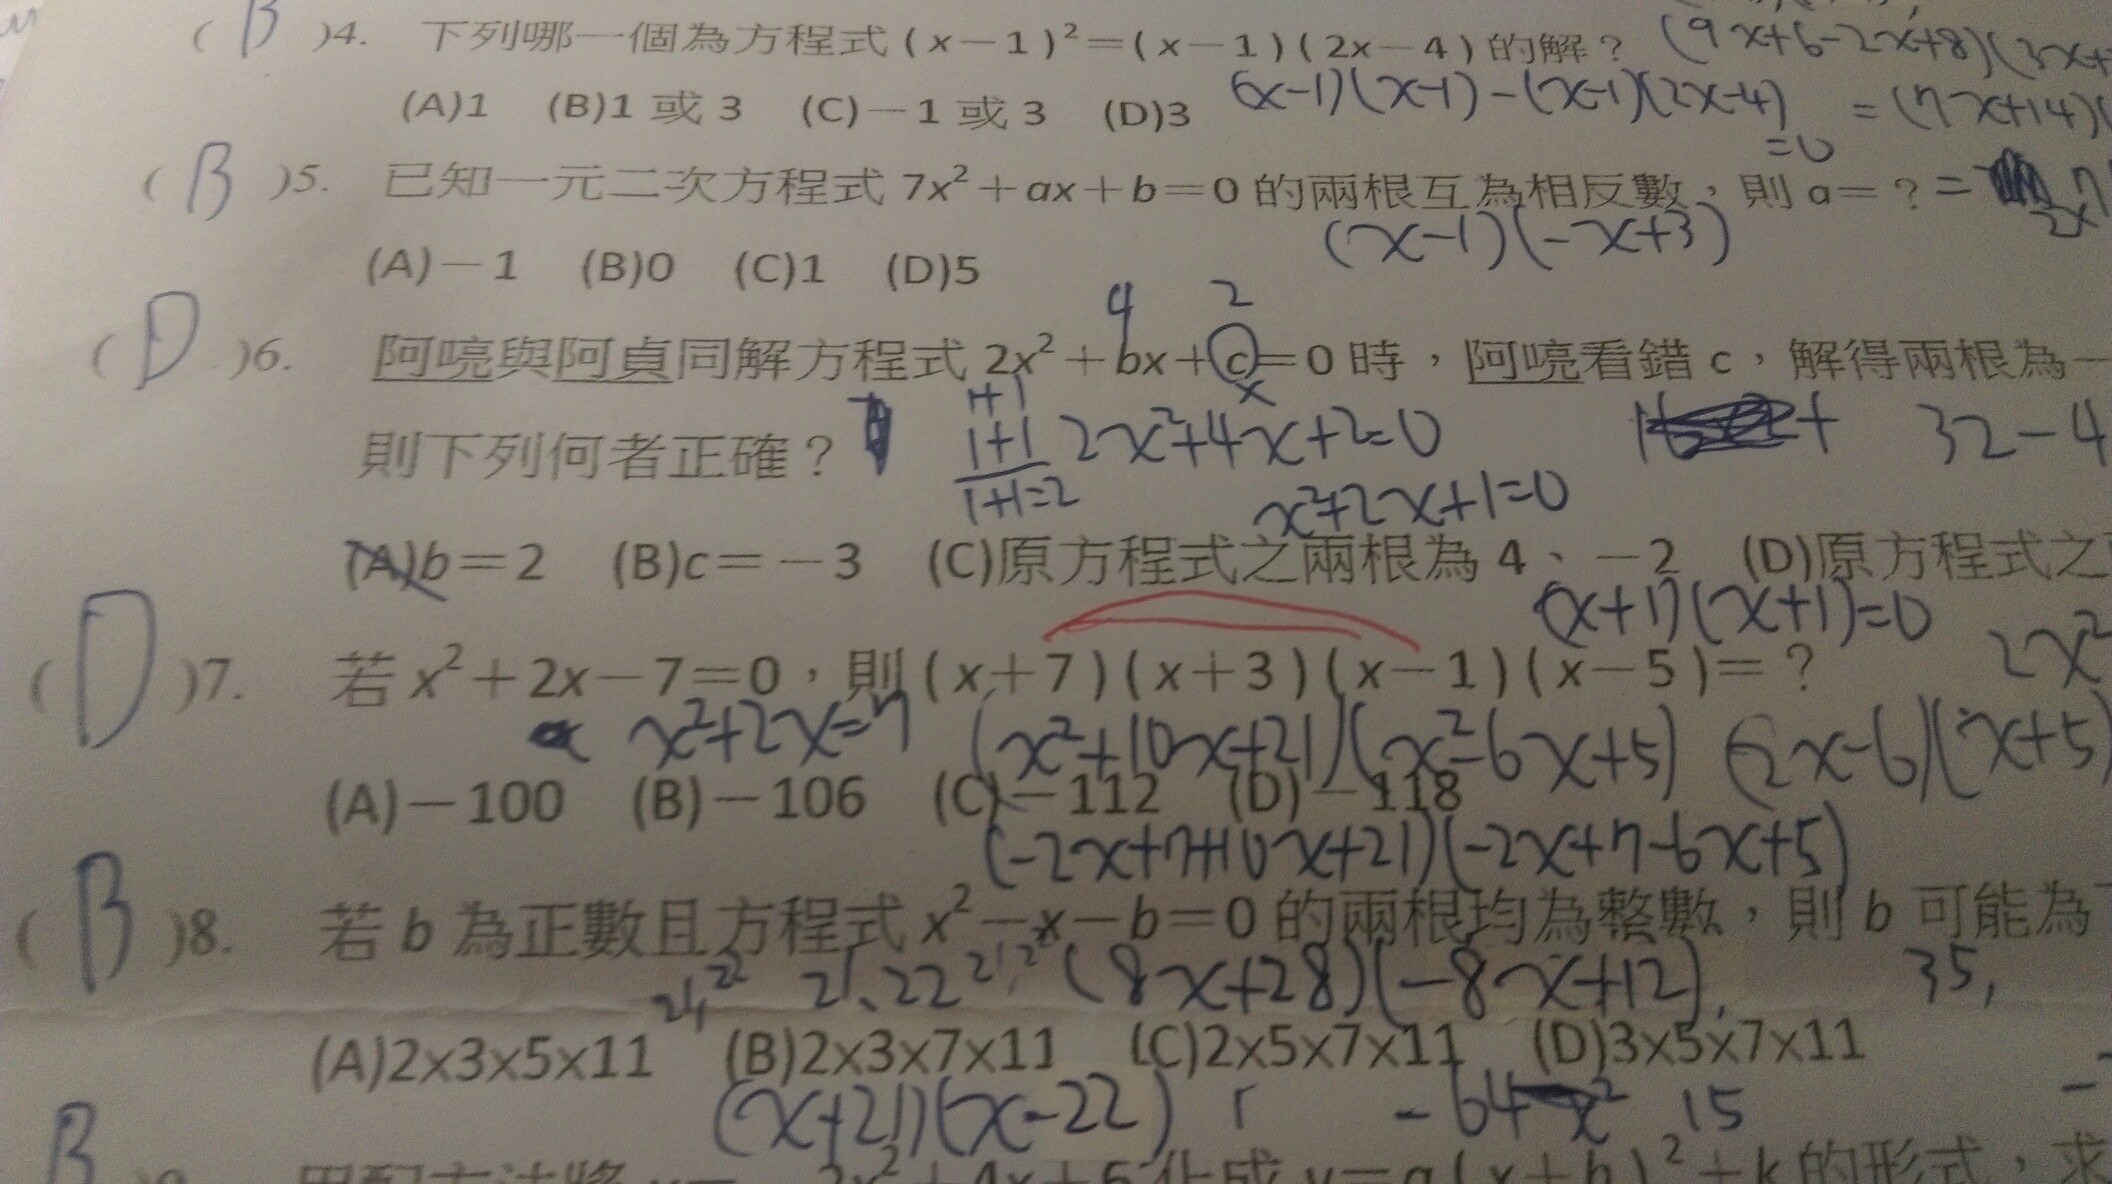 ( B )4. 下列哪一個為方程式(x-1)²=(x-1)(2x-4)的解? (9x+6-2x+8)(3x+
(A)1 (B)1 或 3 (C)-1 或 3 (D)3 (x-1)(x-1)-(x-1)(2x-4) =(7x+14)(
=0
( B )5. 已知一元二次方程式 7x²+ax+b=0 的兩根互為相反數,則 a=?
(x-1)(-x+3)
(A)-1 (B)0 (C)1 (D)5
4 2
( D )6. 阿喨與阿貞同解方程式 2x²+bx+c=0 時,阿喨看錯 c,解得兩根為-
1+1 x
則下列何者正確? 1+1 2x²+4x+2=0 32-4
1+1=2 x²+2x+1=0
(A)b=2 (B)c=-3 (C)原方程式之兩根為 4、-2 (D)原方程式之
(x+1)(x+1)=0
( D )7. 若 x²+2x-7=0,則(x+7)(x+3)(x-1)(x-5)=? 2x²
x²+2x=7 (x²+10x+21)(x²-6x+5) (-2x-6)(x+5)
(A)-100 (B)-106 (C)-112 (D)-118
(-2x+7+10x+21)(-2x+7-6x+5)
( B )8. 若 b 為正數且方程式 x²-x-b=0 的兩根均為整數,則 b 可能為
21、22 (8x+28)(-8x+12) 35,
(A)2x3x5x11 (B)2x3x7x11 (C)2x5x7x11 (D)3x5x7x11
(x+21)(x-22) -64 x² 15
B
用配方法將 y= 2x²+4x+6 化成 y=a(x+h)²+k 的形式,求